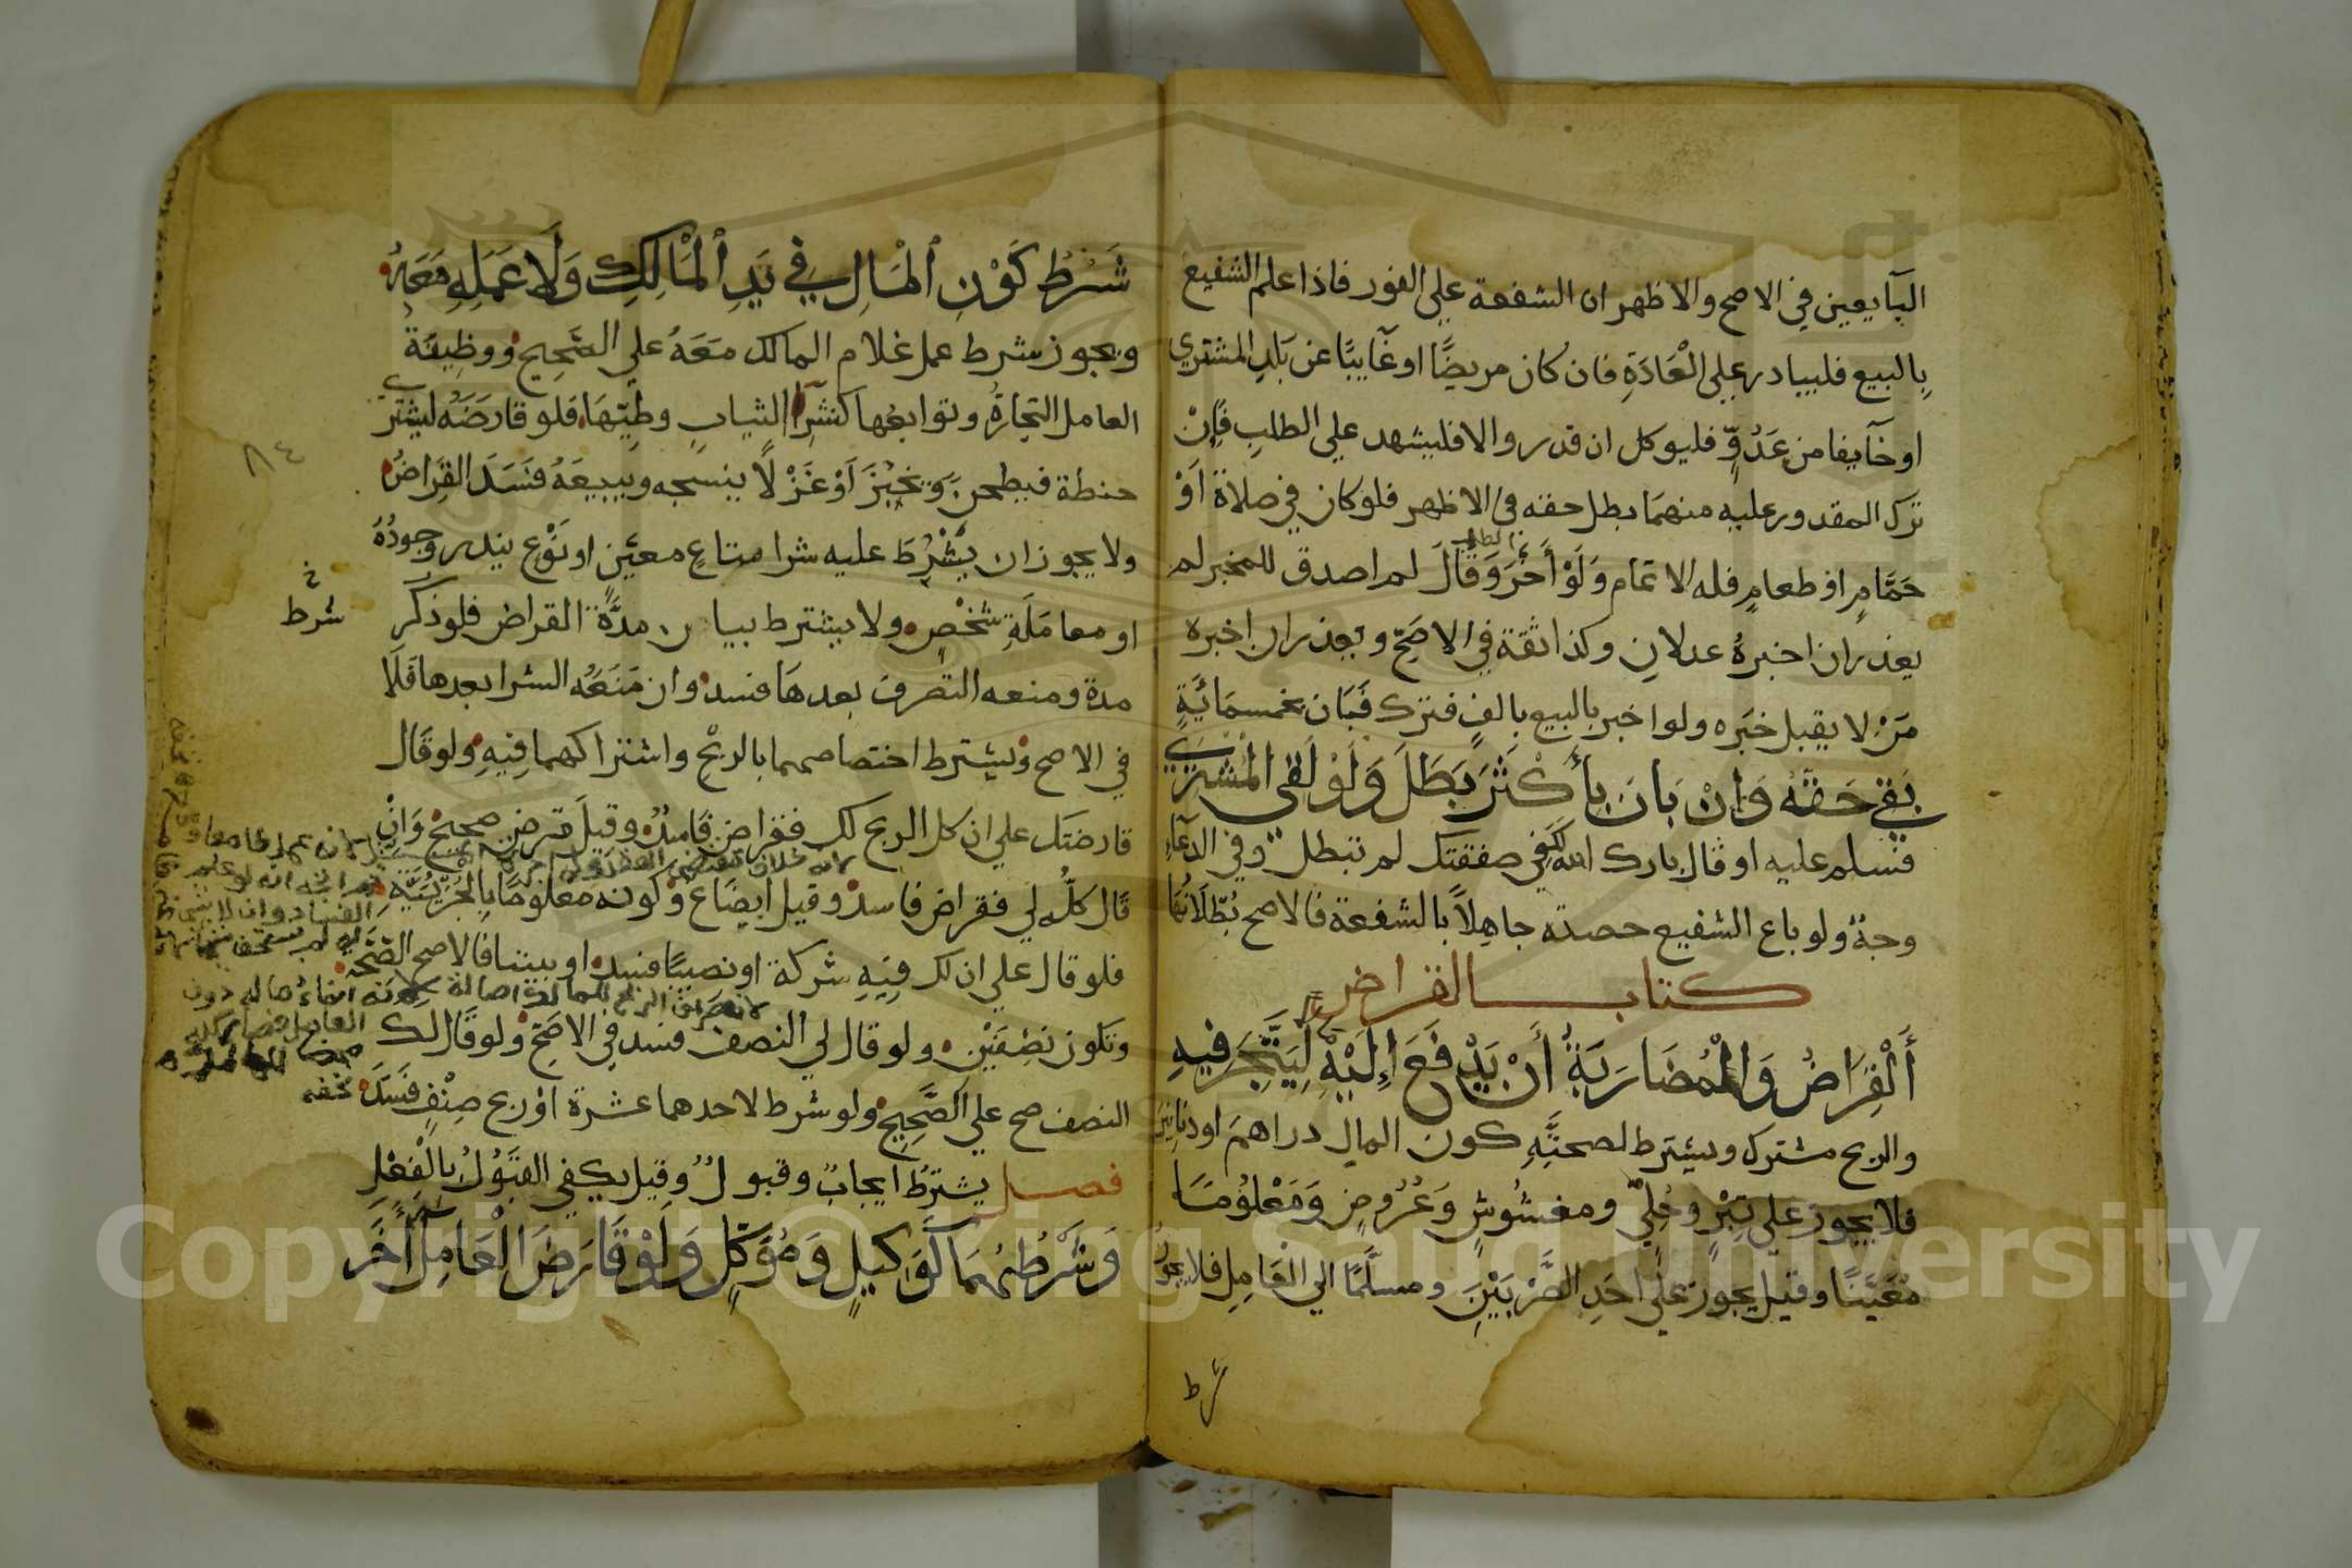 البآيعين في الاصح والاظهر ان الشفعة علي الفور فاذا علم الشفيع
بِالبيع فليبادر علي الْعَادَةِ فان كان مريضًا او غَآيبًا عن بَلدِ المشتري
او خآيفا من عَدُوٍّ فليوكل ان قدر والا فليشهد علي الطلبِ فَإِنْ
ترك المقدور عليه منهمَا بطل حقه في الاظهر فلو كان في صلاة أَوْ
حَمَّامٍ او طعامٍ فله الاتمام وَلَوْ أَخَّرَ وَقَالَ لم اصدق للمخبر لم
الطلب
يعذر ان اخبرهُ عدلانِ وكذا ثقة في الاصَحِّ ويعذر ان اخبره
مَنْ لا يقبل خَبَره ولو اخبر بالبيع بالفٍ فترك فَبَان بخمسمَائَةٍ
بَقي حَقّهُ وَإِنْ بَانَ بِأَكْثَرَ بَطَلَ وَلَوْ لَقي الْمُشْتَرِيَ
فسلم عليه او قال بارك الله في صفقتك لم تبطل وفي الدعَآءِ
وجهٌ ولو باع الشفيع حصته جاهِلاً بالشفعة فالاصح بُطْلَانُهَا
كتاب القراض
أَلْقِرَاضُ وَالْمُضَارَبَةُ أَنْ يَدْفَعَ إِلَيْهِ لِيَتَّجِرَ فِيهِ
مالا
والربح مشترك ويشترط لصحتِّهِ كون المال دراهمَ اودنانيرَ
فلا يجوز علي تِبْرٍ وحُلِيّ ومغشُوشٍ وَعُرُوضٍ وَمَعْلُومًا
مُعَيَّنًا وقيل يجوز علي احَدِ الصُّرَّتَيْنِ ومسلَّمًا الي الْعَامِلِ فلا يجوزُ
شرط
شَرْطُ كَوْنِ الْمَالِ فِي يَدِ الْمَالِكِ وَلَا عَمَلِهِ مَعَهُ
ويجوز شرط عمل غلام المالك مَعَهُ علي الصَّحِيحِ ووظِيفَة
العامل التجارةُ وتوابعُها كنشْرِ الثيابِ وطيِّهَا فلو قارضَهُ ليشتري
٨٤
حنطة فيطحنَ ويخبِزَ أَوْ غَزْلًا ينسجه ويبيعَهُ فسَدَ القِرَاضُ
ولا يجوز ان يشْرُطَ عليه شرا متاعٍ معيَّنٍ او نَوْعٍ يندر وجودُهُ
خ
شرط
او معامَلَةِ شَخْصٍ ولا يشترط بيان مدَّةَ القراض فلو ذكر
مدة ومنعه التصرف بعدهَا فسد وان مَنَعَهُ الشرا بعدها فَلَا
في الاصح ويشترط اختصاصهما بالربْح واشتراكهما فِيهِ ولو قَال
قارضتك علي ان كل الربح لك فقراض فَاسِدٌ وقيل قرض صحيح وَإِنْ
قَال كلُّه لي فقراض فاسد وقيل ابضَاع وكونه مَعْلُومًا بِالْجُزْئِيَّةِ
فلو قال علي ان لك فِيهِ شركة او نصيبًا فسد او بيننا فالاصح الصّحّة
وتكون نصْفَيْنِ ولو قال لي النصف فسد في الاصَحِّ ولو قَال لك
النصف صح علي الصَّحِيحِ ولو شرط لاحدهما عشرة اوْ ربح صِنْفٍ فَسَدَ
فصل يشترَطُ ايجابٌ وقبولٌ وقيل يكفي القبُوْلُ بالْفِعْلِ
وَشَرْطُهُمَا كَوَكِيلٍ وَمُوَكِّلٍ وَلَوْ قَارَضَ الْعَامِلُ آخَرَ